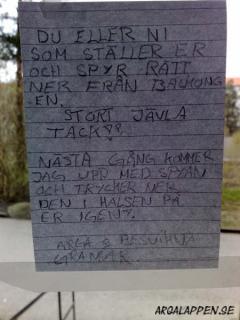 DU ELLER NI
SOM STÄLLER ER
OCH SPYR RATT
NER FRÅN BALKONG
EN.
STORT JÄVLA
TACK!?
NÄSTA GÅNG KOMMER
JAG UPP MED SPYAN
OCH TRYCKER NER
DEN I HALSEN PÅ
ER IGEN!
ARGA & BESVIKNA
GRANNAR
ARGALAPPEN.SE